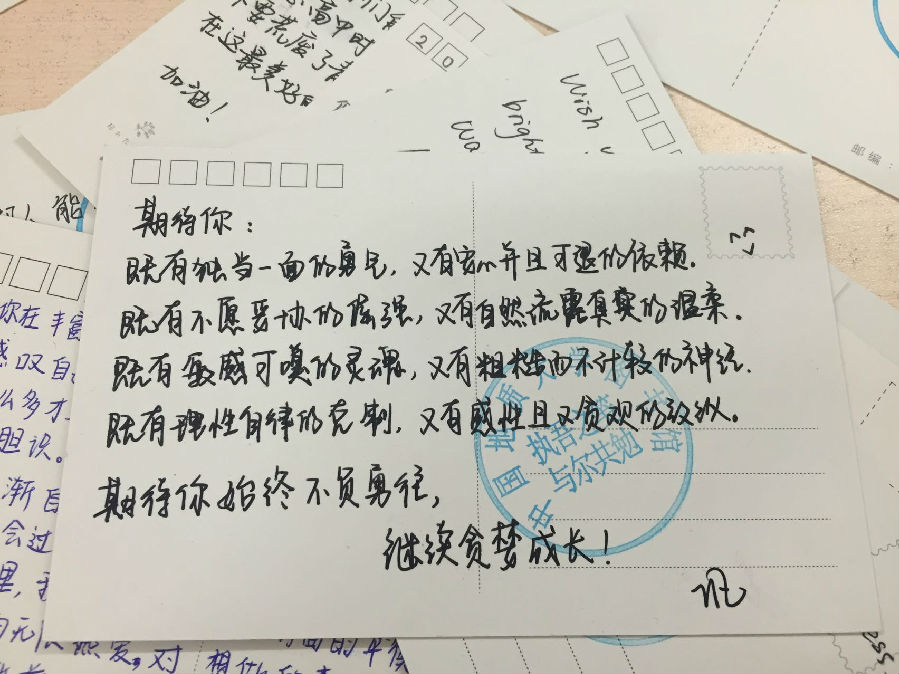 期待你：
既有独当一面的勇气，又有安心并且可退的依赖．
既有不愿妥协的倔强，又有自然流露真实的温柔．
既有敏感可嗅的灵魂，又有粗糙而不计较的神经．
既有理性自律的克制，又有感性且又贪欢的放纵。
期待你始终不负勇往，
继续贪梦成长！
中国地质大学
执吾之笔
与尔共勉
高中时
不要荒废了青
在这最美好
加油！
20
wish
bright
邮编：
能
你在丰富
感叹自
么多才
胆识。
渐自
会过
里，
对